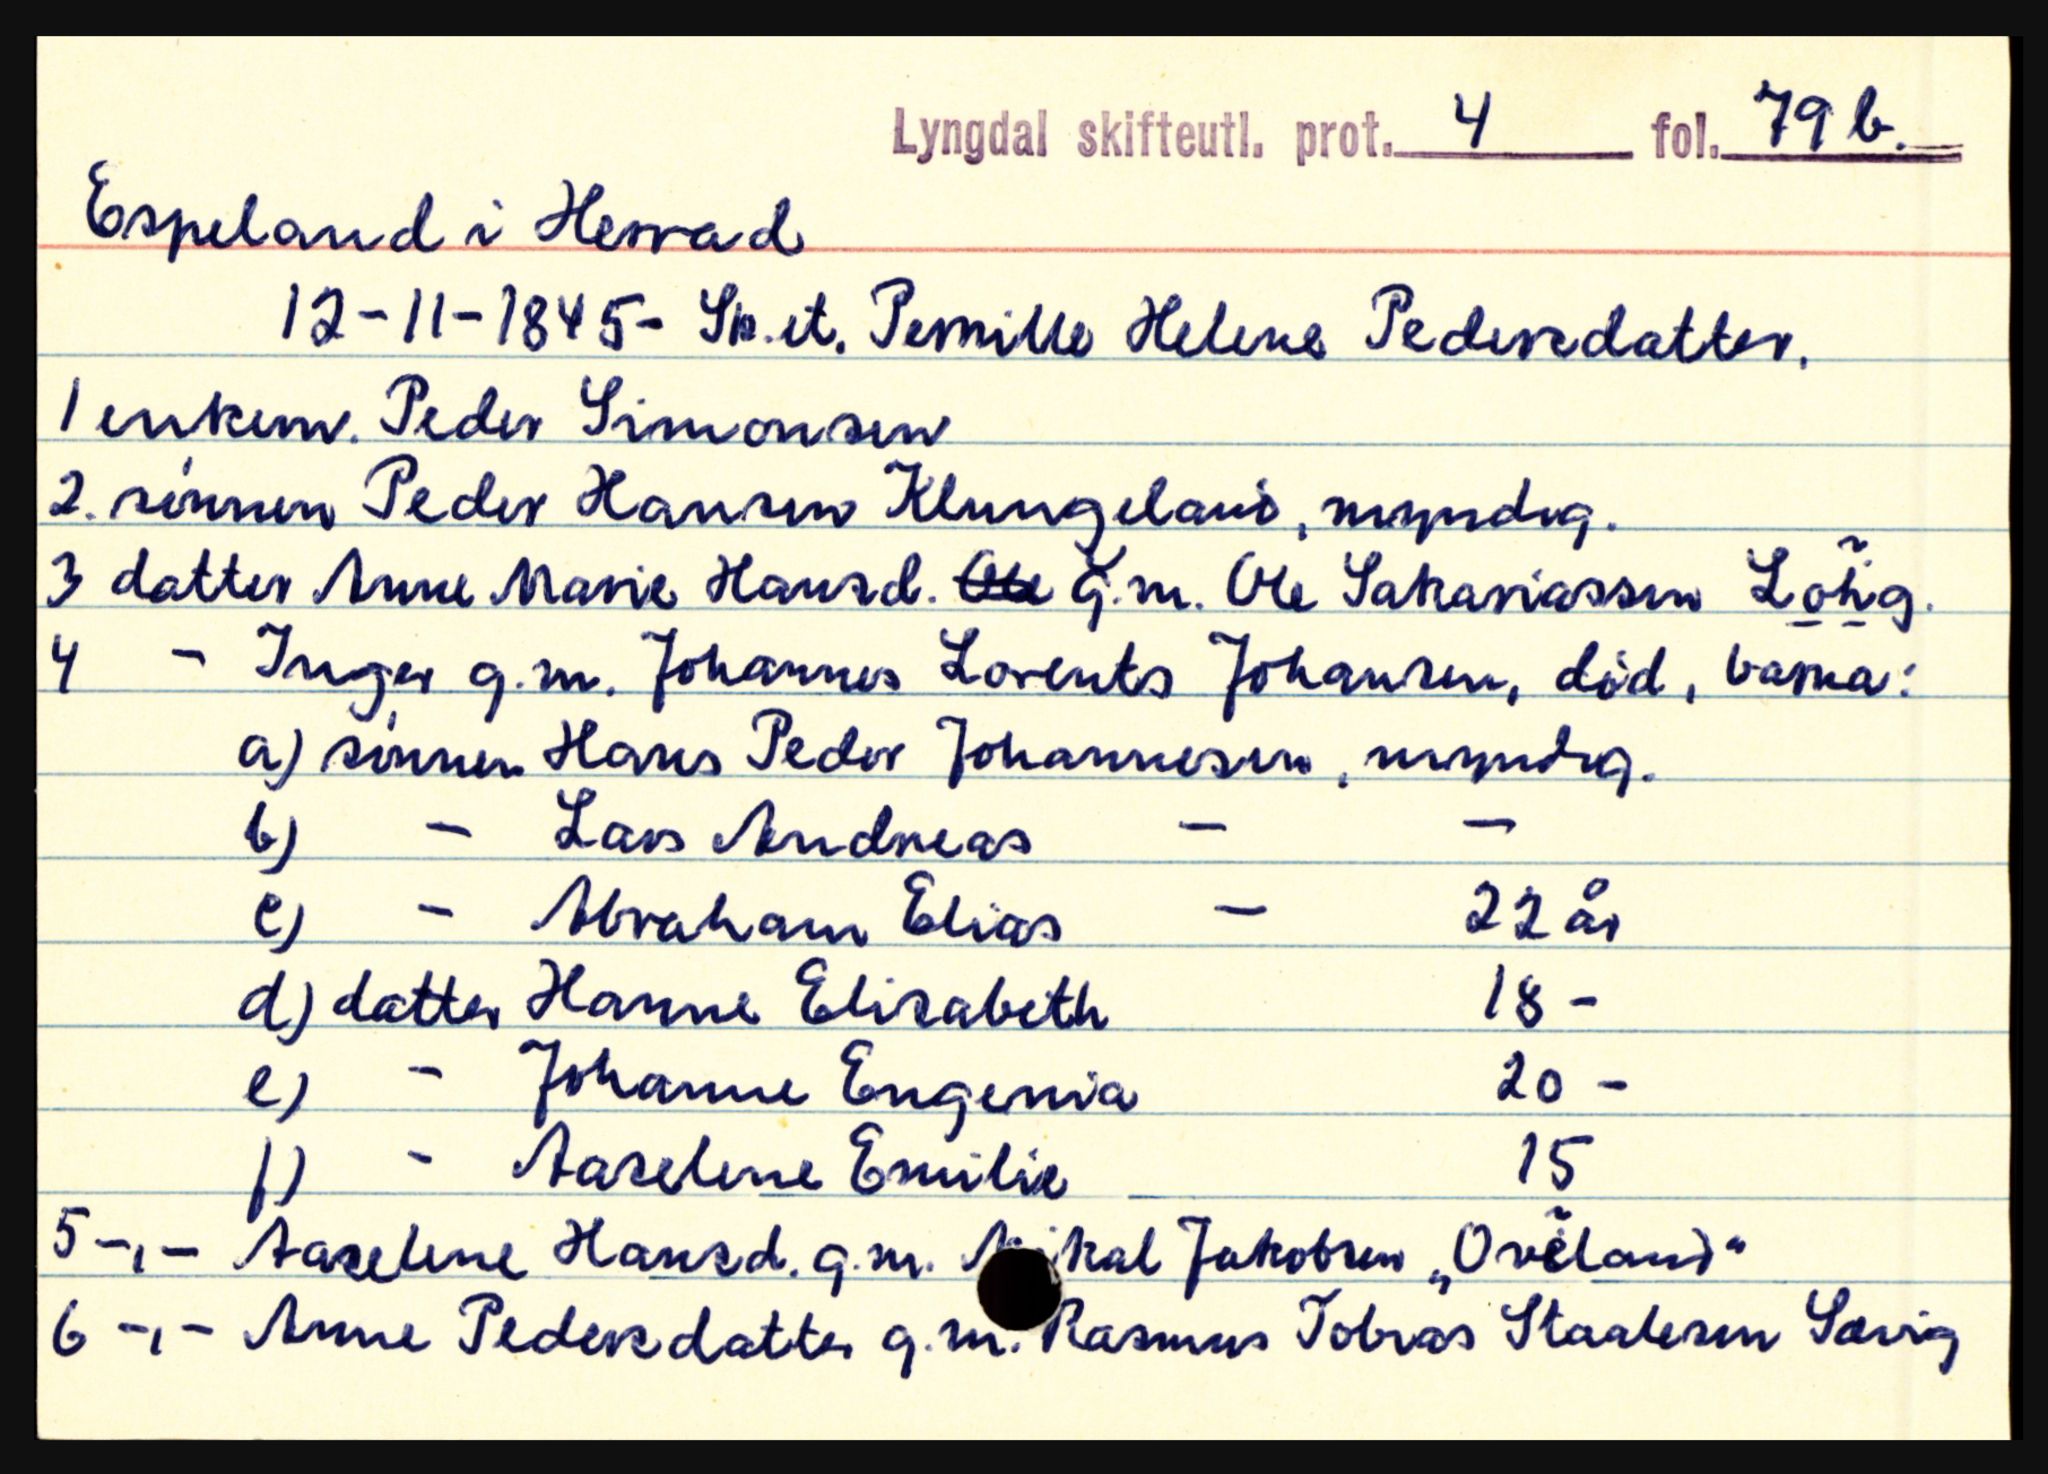 Lyngdal skifteutl. prot. 4 fol. 79 b.
Espeland i Herrad
12-11-1845- Sk. et. Pernille Helene Pedersdatter.
1 enkem. Peder Simonsen
2. sønnen Peder Hansen Klungeland, myndig.
3 datter Anne Marie Hansd. Ole g.m. Ole Sakariassen Löhg.
4 - Inger g.m. Johannes Lorents Johansen, død, barna:
a) sønnen Hans Peder Johannesen, myndig.
b) - Lars Andreas - -
c) - Abraham Elias - 22 år
d) datter Hanne Elisabeth 18 -
e) - Johanne Eugenia 20 -
f) - Aaselene Emilie 15
5 -,- Aaselene Hansd. g.m. Mikal Jakobsen „Oveland"
6 -,- Anne Pedersdatter g.m. Rasmus Tobias Staalesen Sævig